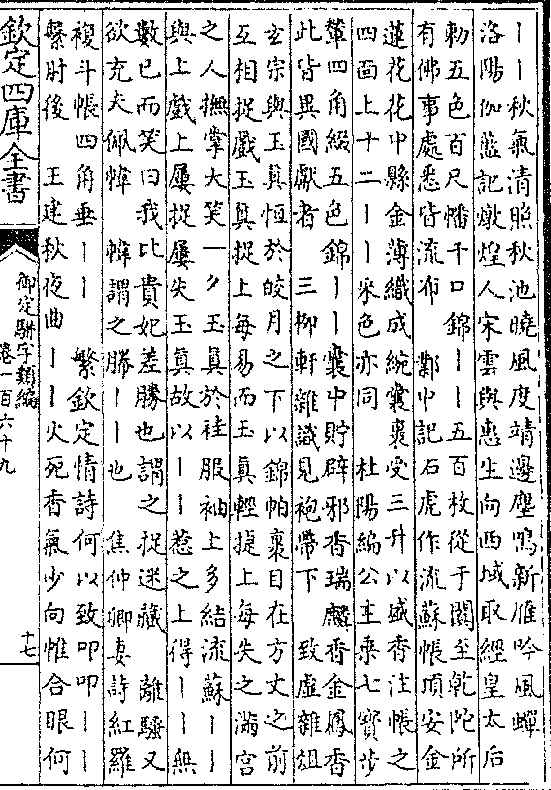 丨丨秋氣清照秋池曉風度靖邊塵鳴新雁吟風蟬
洛陽伽藍記燉煌人宋雲與惠生向西域取經皇太后
勅五色百尺幡千口錦丨丨五百枚從于闐至乾陀所
有佛事處悉皆流布　鄴中記石虎作流蘇帳頂安金
蓮花花中縣金薄織成綩囊囊受三升以盛香注帳之
四面上十二丨丨采色亦同　杜陽編公主乘七寶步
輦四角綴五色錦丨丨囊中貯辟邪香瑞麟香金鳳香
此皆異國獻者　三柳軒雜識見袍帶下　致虛雜俎
玄宗與玉真恒於皎月之下以錦帕裹目在方丈之前
互相捉戲玉真捉上每易而玉真輕捷上每失之滿宮
之人撫掌大笑一夕玉真於袿服袖上多結流蘇丨丨
與上戲上屢捉屢失玉真故以丨丨惹之上得丨丨無
數已而笑曰我比貴妃差勝也謂之捉迷藏　離騷又
欲充夫佩幃　幃謂之幐丨丨也　焦仲卿妻詩紅羅
複斗帳四角垂丨丨　繁欽定情詩何以致叩叩丨丨
繫肘後　王建秋夜曲丨丨火死香氣少向帷合眼何
欽定四庫全書
御定駢字類編
卷一百六十九
十七